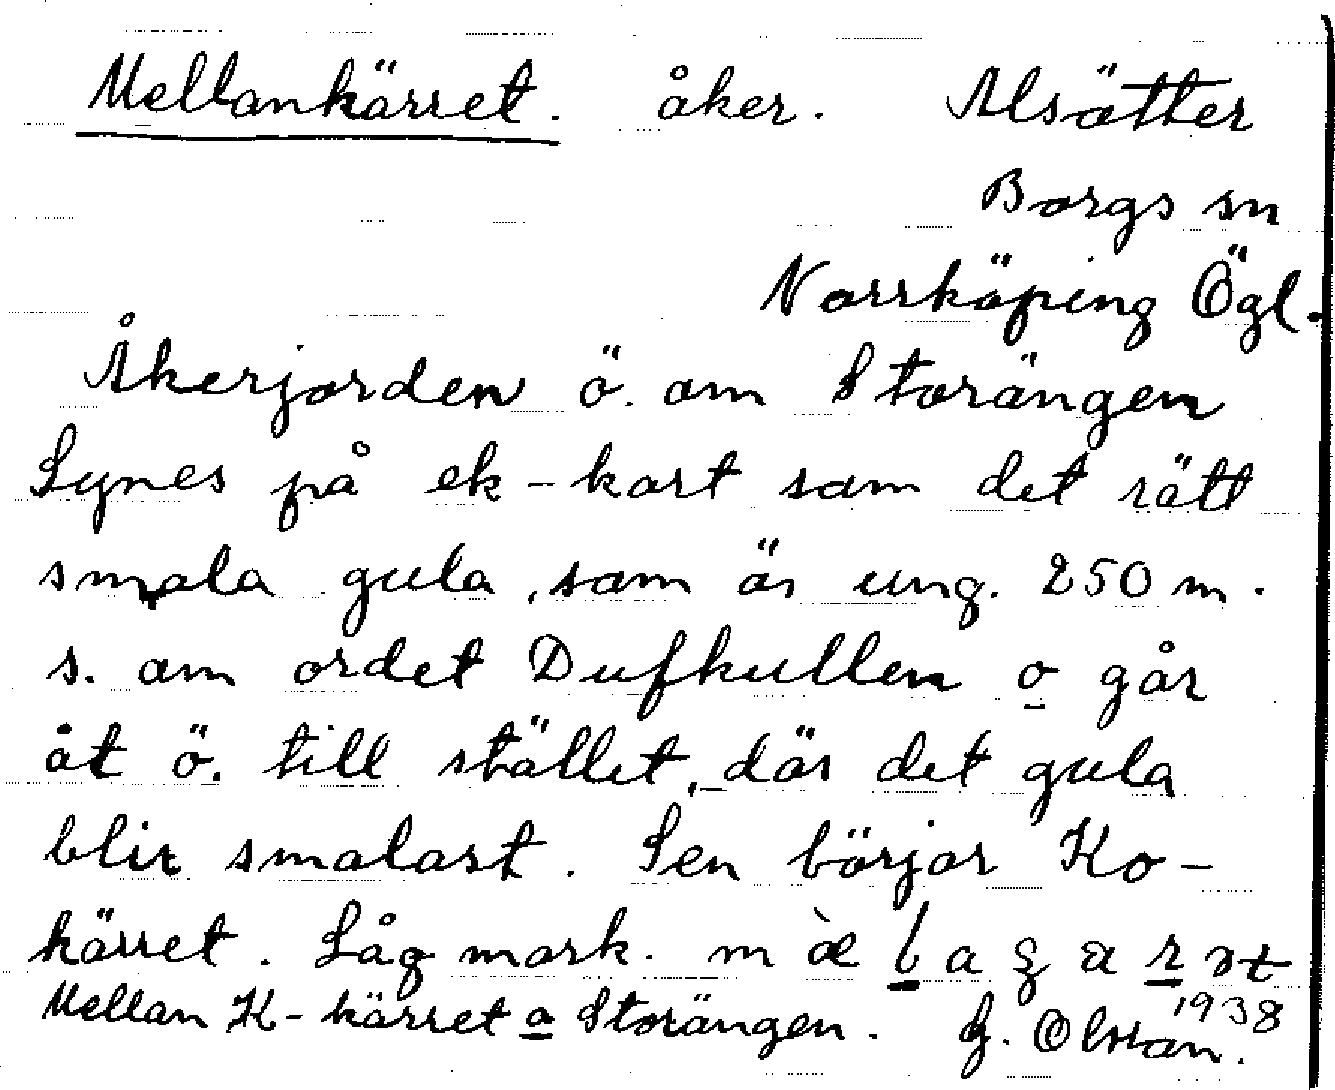 Mellankärret. åker. Alsätter
Borgs sn
Norrköping Ögl.
Åkerjorden ö. om Storängen
Synes på ek-kart som det rätt
smala gula, som är ung. 250 m.
s. om ordet Dufkullen o går
åt ö. till stället, där det gula
blir smalast. Sen börjar Ko-
kärret. Låg mark.
Mellan K-kärret o Storängen. 1938
G. Olsson.